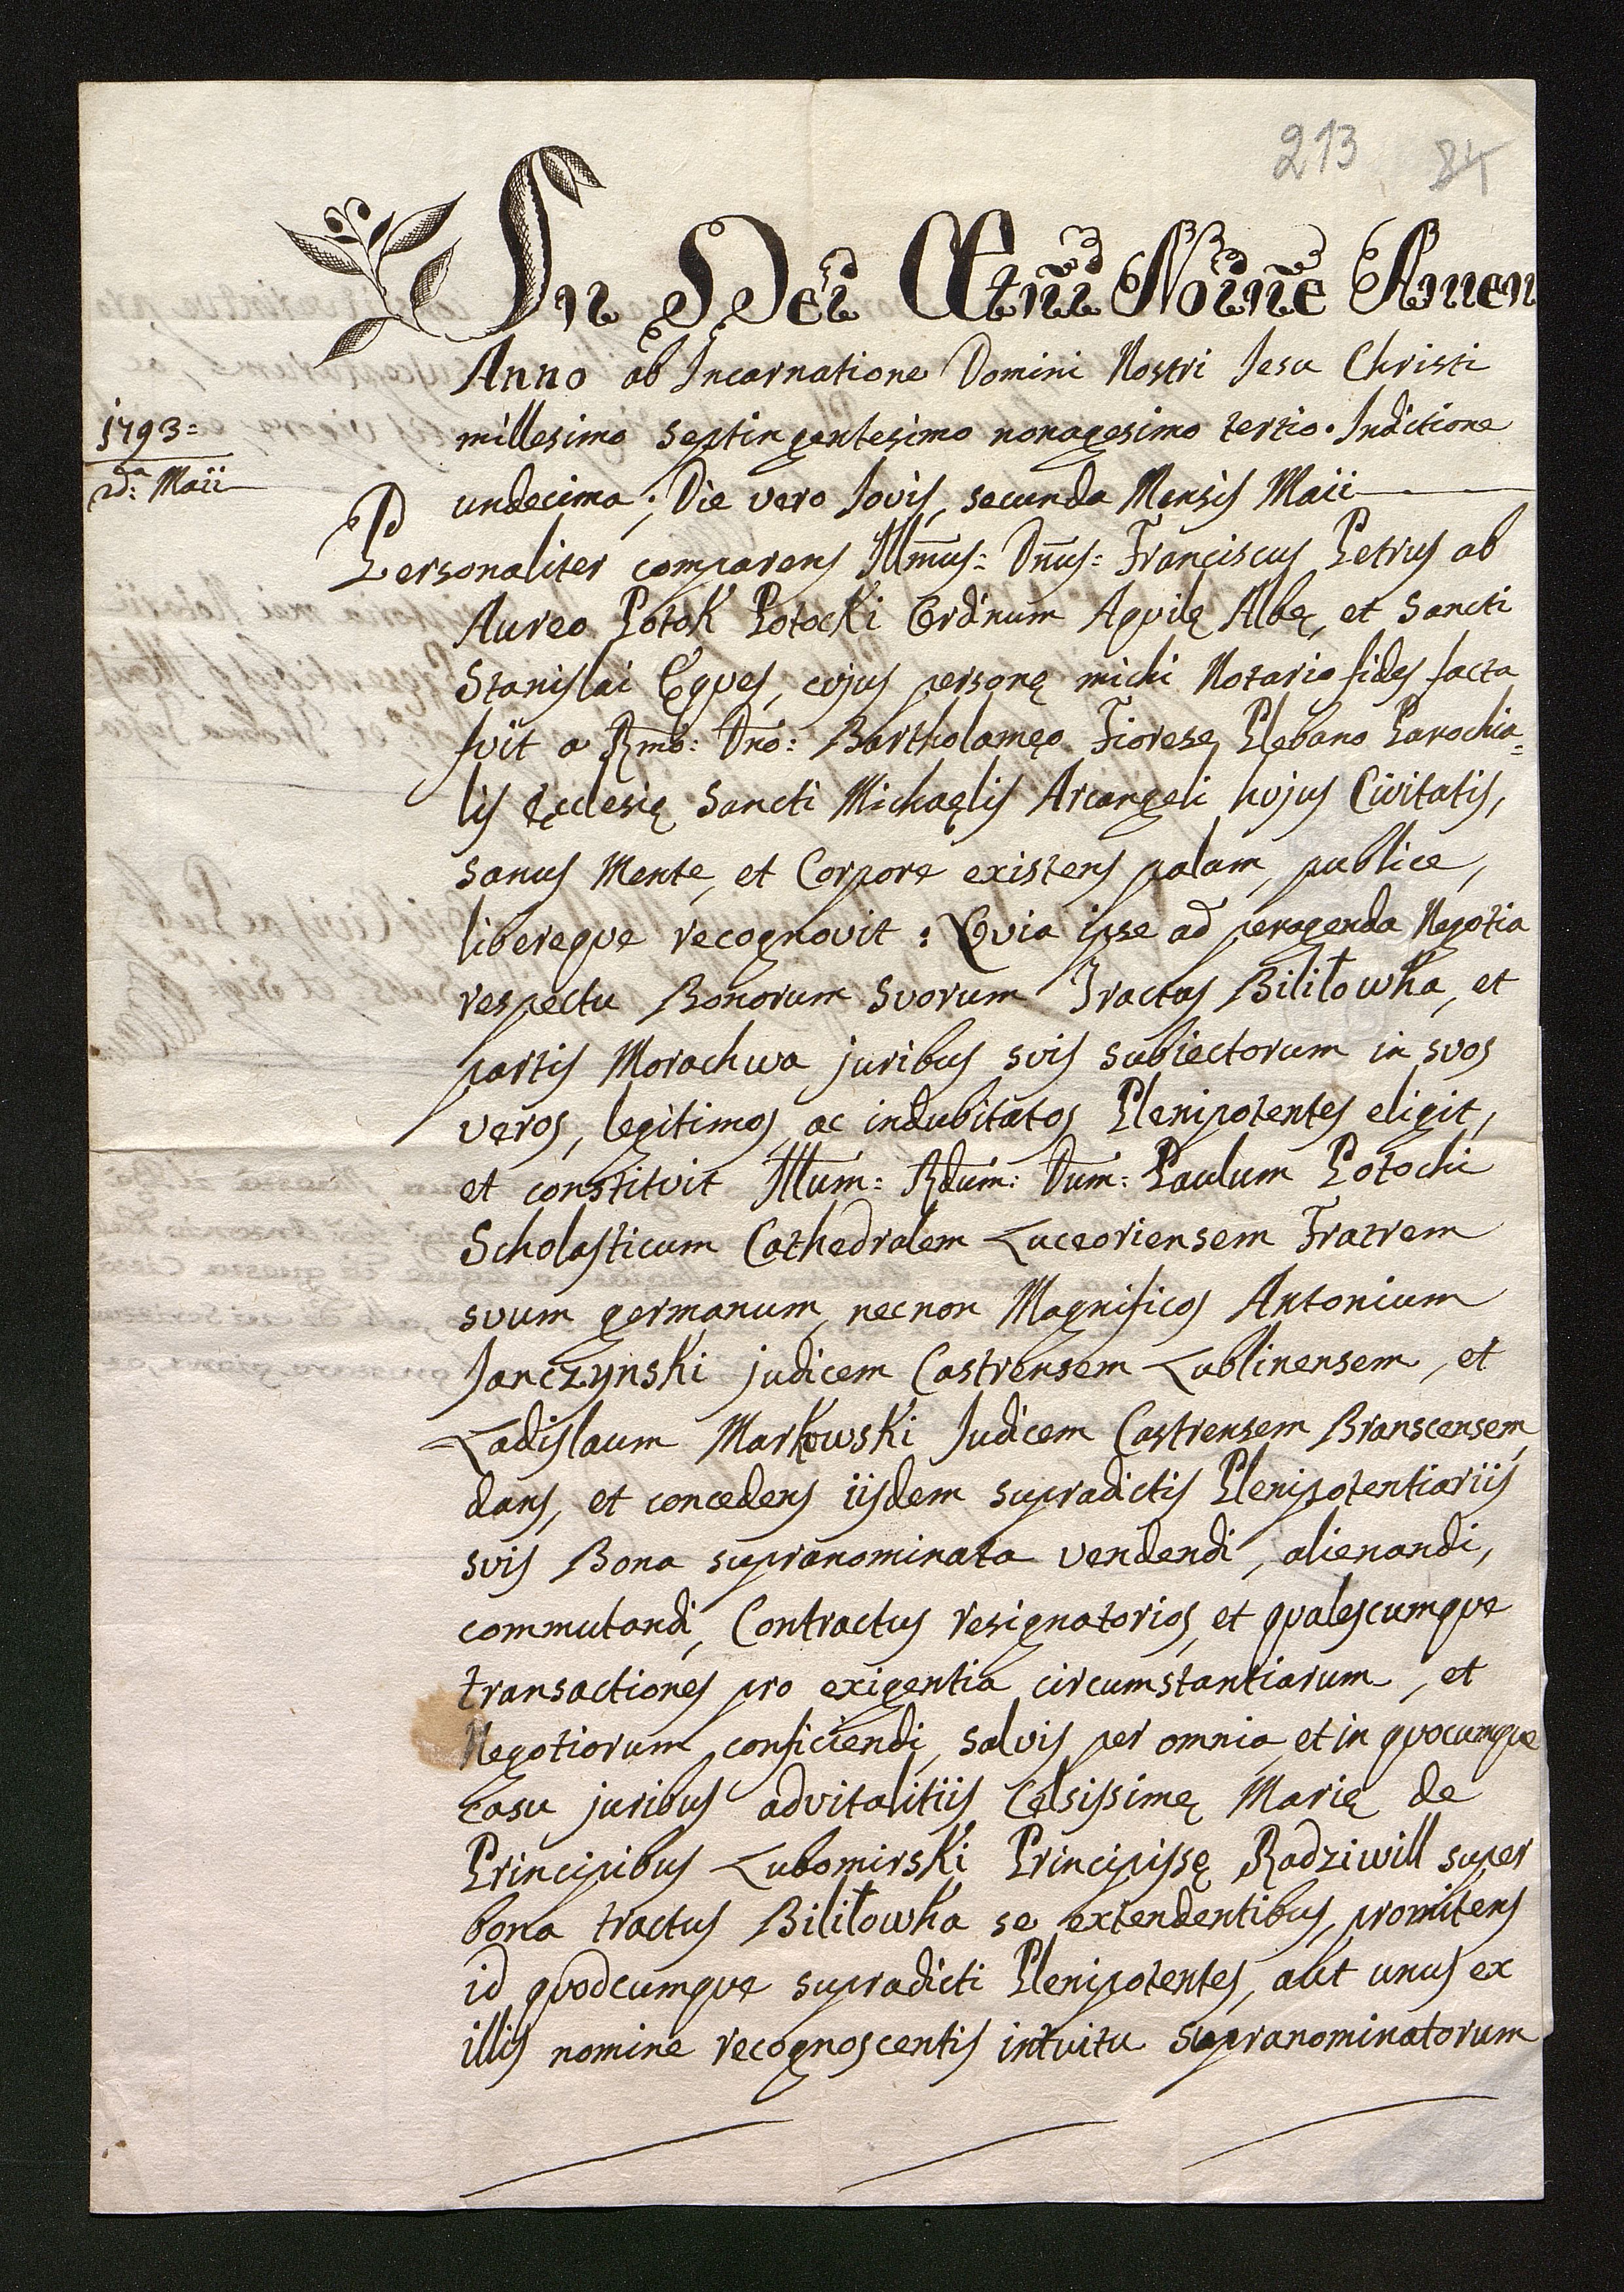 213 84
In Dei Ætñi Nõiñe Amen
Anno ab Incarnatione Domini Nostri Jesu Christi
1793=
millesimo septingentesimo nonagesimo tertio. Inditione
2dª: Maii
undecima; Die vero Jovis, secunda Mensis Maii
Personaliter comparens Illm̃us= Dñus= Franciscus Petrus ab
Aureo Potok Potocki Ordinum Aqvilę Albę, et Sancti
Stanislai Eqves, cujus personę michi Notario fides facta
fvit a Rm̃o: Dño: Bartholamęo Fiorese Plebano Parochia=
lis Ecclesię Sancti Michaęlis Arcangeli hujus Civitatis,
sanus Mente, et Corpore existens palam, publice,
libereqve recognovit: Qvia ipse ad peragenda Negotia
respectu Bonorum svorum Tractus Bililowka, et
partis Morachwa juribus svis subiectorum in svos
veros, legitimos, ac indubitatos Plenipotentes eligit,
et constitvit Illum= Rdum: Dum: Paulum Potochi
Scholasticum Cathedralem Luceoriensem Fratrem
svum germanum, necnon Magnificos Antonium
Janczynski judicem Castrensem Lublinensem, et
Ladislaum Markowski Judicem Castrensem Branscensem,
dans, et concedens iisdem supradictis Plenipotentiariis
svis Bona supranominata vendendi, alienandi,
commutandi, Contractus resignatorios, et qvalescumqve
transactiones pro exigentia circumstantiarum, et
Negotiorum conficiendi, salvis per omnia, et in qvocumqve
casu juribus advitalitiis Celsissimę Marię de
Principibus Lubomirski Principissę Radziwill super
bona tractus Bililowka se extendentibus, promitens
id qvodcumqve supradicti Plenipotentes, aut unus ex
illis nomine recognoscentis intvitu supranominatorum